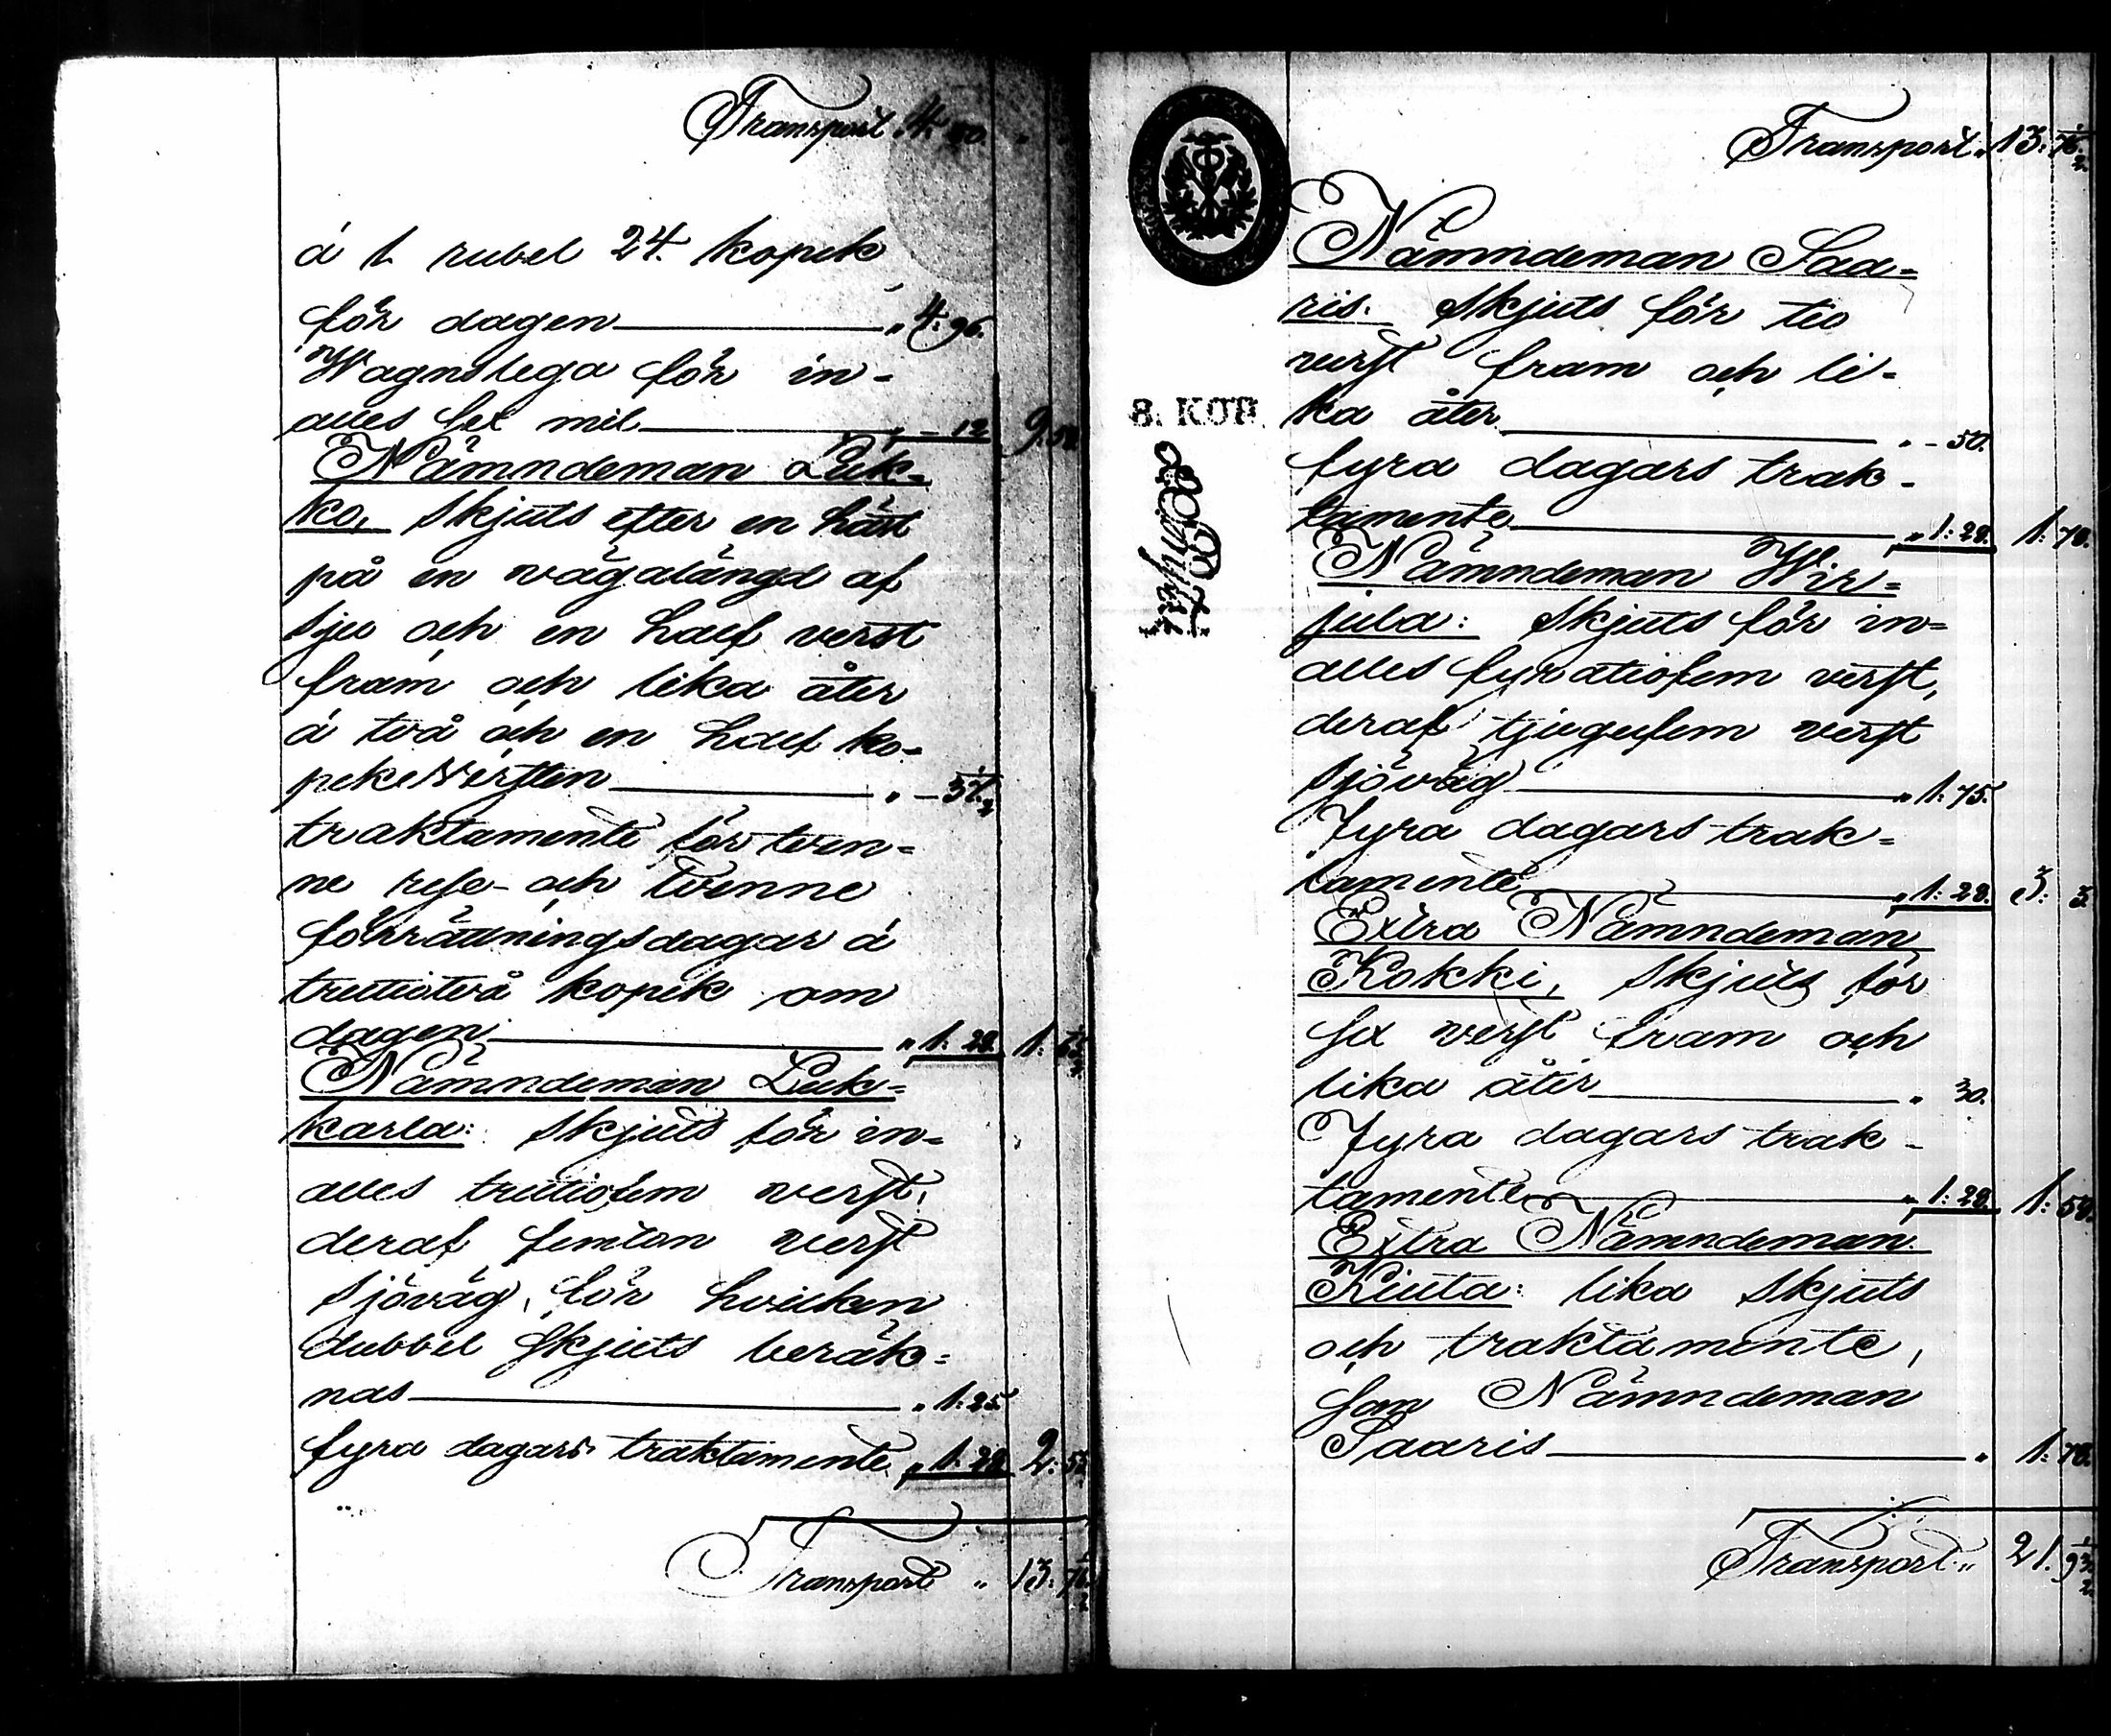 Transport 4. 50. " "
á 1. rubel 24. kopek
för dagen " 4. 96.
Wagnslega för in-
alles sex mil " – 12 9. 58
Nämndeman Luk-
ko, skjuts efter en häst
på en vägalängd af
sju och en half verst
fram och lika åter
á två och en half ko-
pek wersten " – 37 1/2
traktamente för tven-
ne rese- och tvenne
förrättningsdagar á
trettiotvå kopek om
dagen " 1. 28. 1. 65 1/2
Nämndeman Luk-
karla: skjuts för in-
alles trettiofem verst,
deraf femton verst
sjöväg, för hvilken
dubbel skjuts beräk-
nas " 1. 25.
fyra dagars traktamente " 1. 28. 2. 53
Transport " 13. 76 1/2
8. KOP.
Transport " 13. 76 1/2
Nämndeman Saa-
ris. Skjuts för tio
verst fram och li-
ka åter " – 50.
fyra dagars trak-
tamente " 1: 28. 1. 78.
Nämndeman Wir-
jula: Skjuts för in-
alles fyratiofem verst,
deraf tjugufem verst
sjöväg " 1. 75.
Fyra dagars trak-
tamente " 1: 28. 3. 3.
Extra Nämndeman
Kokki, Skjuts för
sex verst fram och
lika åter " 30.
Fyra dagars trak-
tamente " 1: 28. 1: 58.
Extra Nämndeman
Kiuta: lika skjuts
och traktamente,
som Nämndeman
Saaris " 1. 78.
Transport " 21. 93 1/2